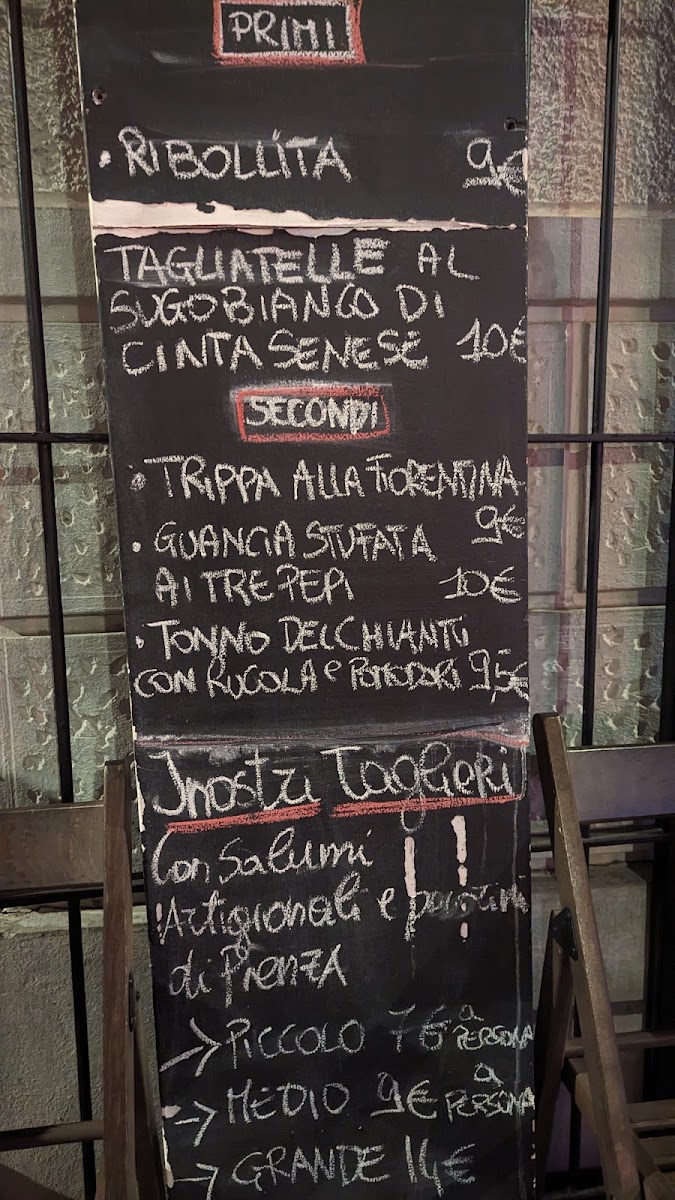 PRIMI
• RIBOLLITA 9€
TAGLIATELLE AL
SUGO BIANCO DI
CINTA SENESE 10€
SECONDI
• TRIPPA ALLA FIORENTINA
9€
• GUANCIA STUFATA
AI TRE PEPI 10€
• TONNO DEL CHIANTI
CON RUCOLA e POMODORI 9,5€
I nostri Taglieri
Con Salumi !!
Artigianali e pecorini
di Pienza
→ PICCOLO 7€ a PERSONA
→ MEDIO 9€ a PERSONA
→ GRANDE 14€